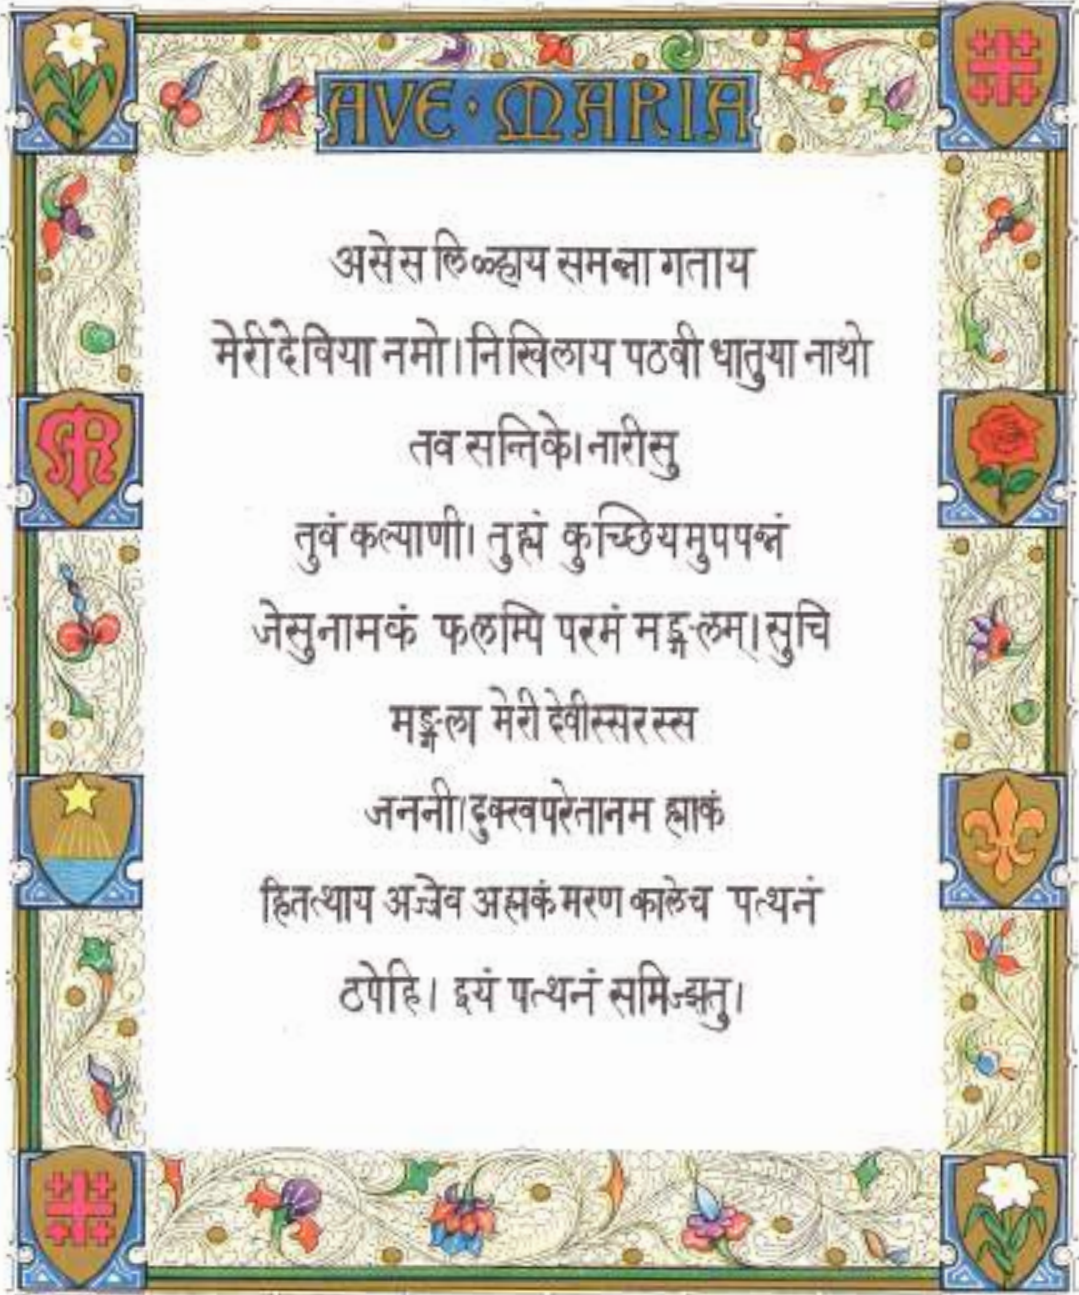 AVE · MARIA
असेस लिळ्हाय समन्ना गताय
मेरी देविया नमो। निखिलाय पठवी धातुया नाथो
तव सन्तिके। नारीसु
तुवं कल्याणी। तुह्यं कुच्छियमुपपन्नं
जेसुनामकं फलम्पि परमं मङ्गलम्। सुचि
मङ्गला मेरी देवीस्सरस्स
जननी। दुक्खपरेतानम ह्माकं
हितत्थाय अज्जेव अह्मकं मरण कालेच पत्थनं
ठपेहि। इयं पत्थनं समिज्झतु।